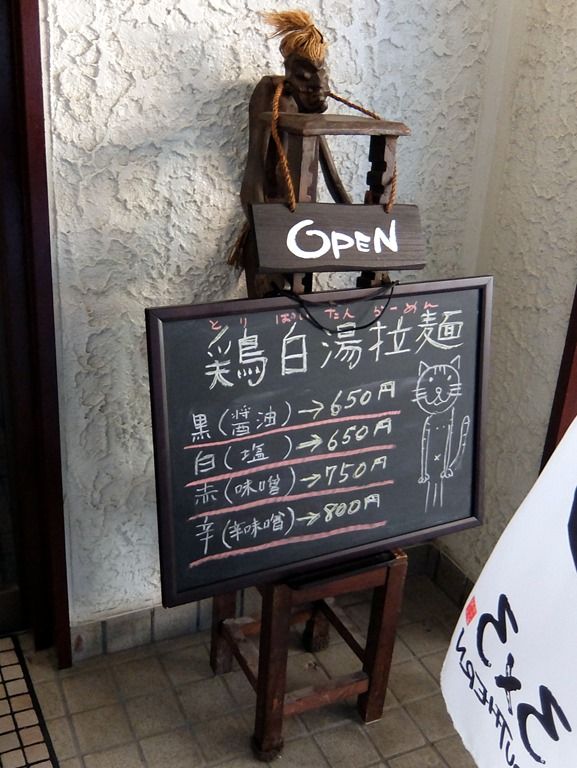 OPEN
とり ぱいたん らーめん
鶏白湯拉麺
黒(醤油)→650円
白(塩)→650円
赤(味噌)→750円
辛(辛味噌)→800円